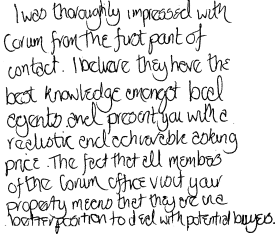 I was thoroughly impressed with
Corum from the first point of
contact. I believe they have the
best knowledge amongst local
agents and present you with a
realistic and achievable asking
price. The fact that all members
of the Corum office visit your
property means that they are in a
better position to deal with potential buyers.